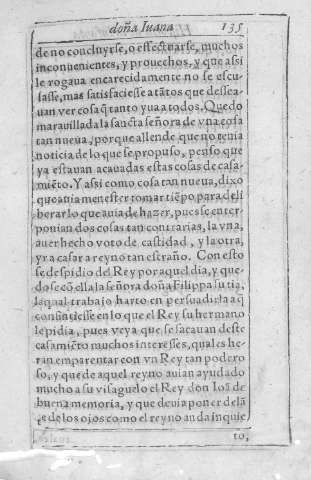 doña Iuana 135
de no concluyrse, o effectuarse, muchos
inconuenientes, y prouechos, y que assi
le rogaua encarecidamente no se escu-
sasse, mas satisfaciesse a tãtos que dessea-
uan ver cosa q̃ tanto yua a todos. Quedo
marauillada la sancta señora de vna cosa
tan nueua, porque allende que no tenia
noticia de lo que se propuso, penso que
ya estauan acauadas estas cosas de casa-
miẽto. Y assi como cosa tan nueua, dixo
que auia menester tomar tiẽpo para deli
berar lo que auia de hazer, pues se enter
ponian dos cosas tan contrarias, la vna,
auer hecho voto de castidad, y la otra,
yr a casar a reyno tan estraño. Con esto
se despidio del Rey por aquel dia, y que-
do se cõ ella la señora doña Filippa su tia,
la qual trabajo harto en persuadirla a q̃
consintiesse en lo que el Rey su hermano
le pidia, pues veya que se sacauan deste
casamiẽto muchos interesses, quales he-
ran emparentar con vn Rey tan podero
so, y que de aquel reyno auian ayudado
mucho a su visaguelo el Rey don Ioã de
buena memoria, y que deuia poner delã
te de los ojos como el reyno anda inquie
to,